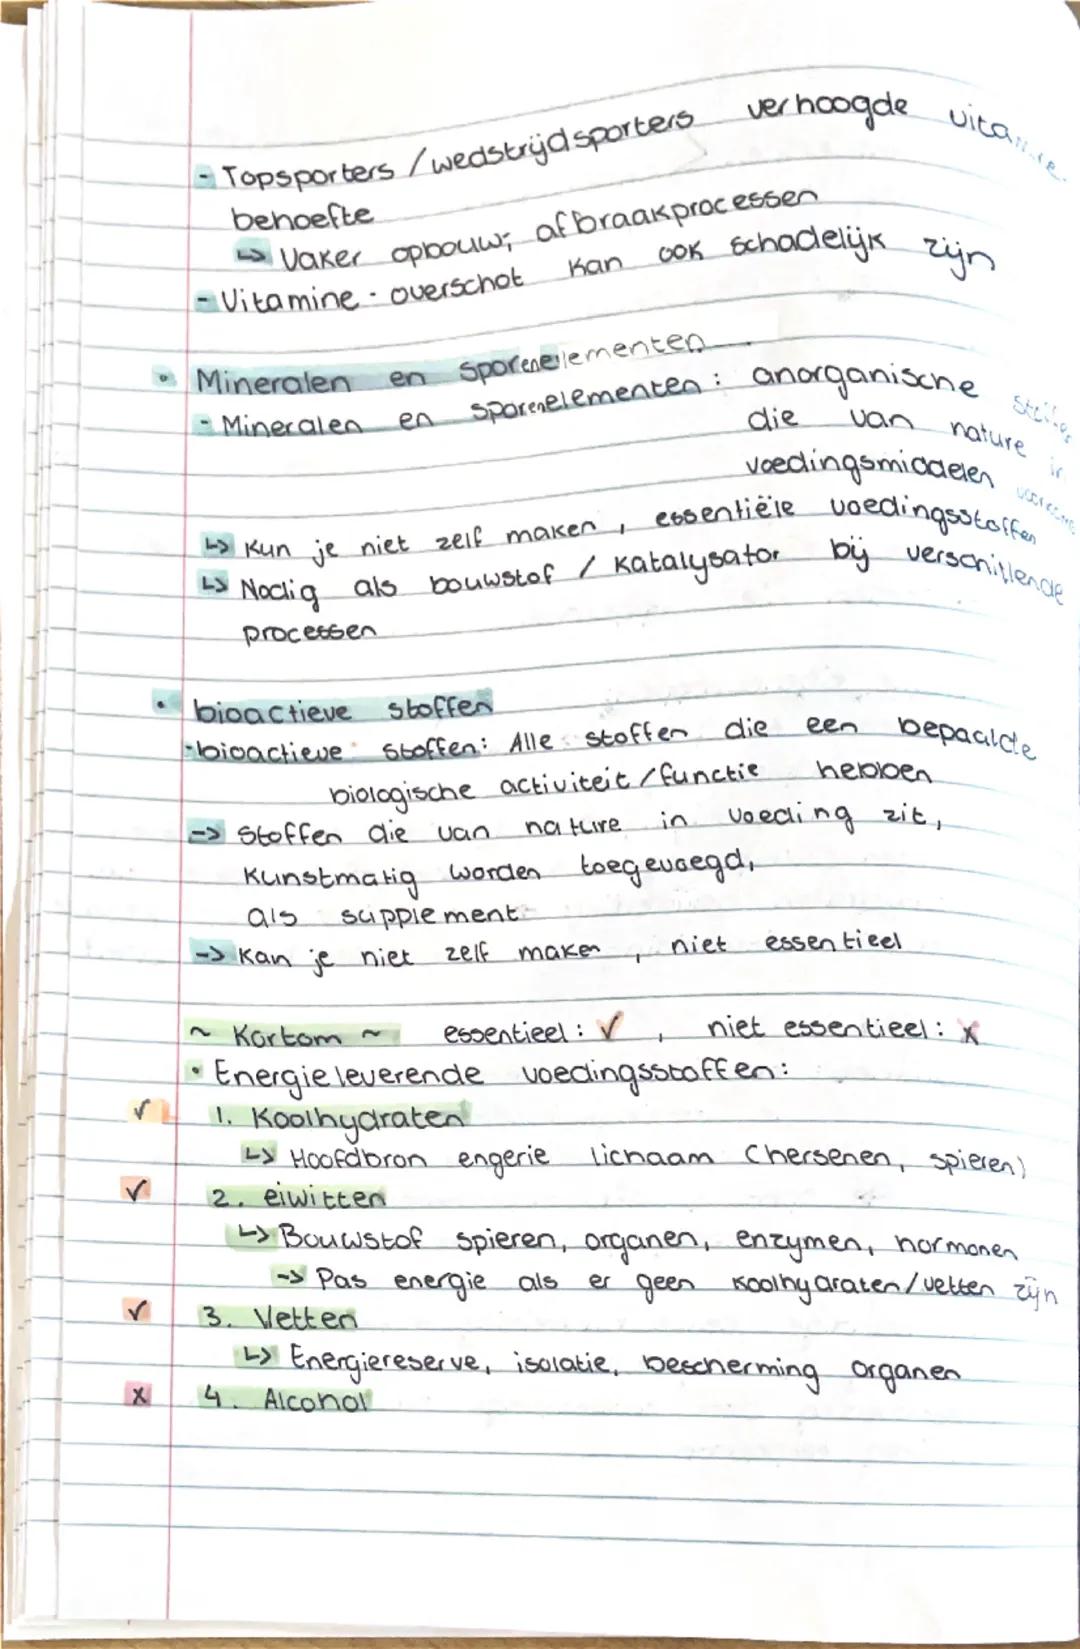 - Topsporters / wedstrijdsporters verhoogde vitamine
behoefte
↳ Vaker opbouw; afbraakprocessen
- Vitamine - overschot kan ook schadelijk zijn
• Mineralen en sporenelementen
- Mineralen en sporenelementen: anorganische stoffen
die van nature in
voedingsmiddelen
↳ Kun je niet zelf maken, essentiële voedingsstoffen
↳ Nodig als bouwstof / katalysator bij verschillende
processen
• bioactieve stoffen
- bioactieve stoffen: Alle stoffen die een bepaalde
biologische activiteit / functie hebben
-> Stoffen die van nature in voeding zit,
kunstmatig worden toegevoegd,
als supplement
-> Kan je niet zelf maken, niet essentieel
~ Kortom ~ essentieel: ✓, niet essentieel: x
• Energieleverende voedingsstoffen:
✓ 1. Koolhydraten
↳ Hoofdbron engerie lichaam (hersenen, spieren)
✓ 2. eiwitten
↳ Bouwstof spieren, organen, enzymen, hormonen
-> Pas energie als er geen koolhydraten/vetten zijn
✓ 3. Vetten
↳ Energiereserve, isolatie, bescherming organen
x 4. Alcohol